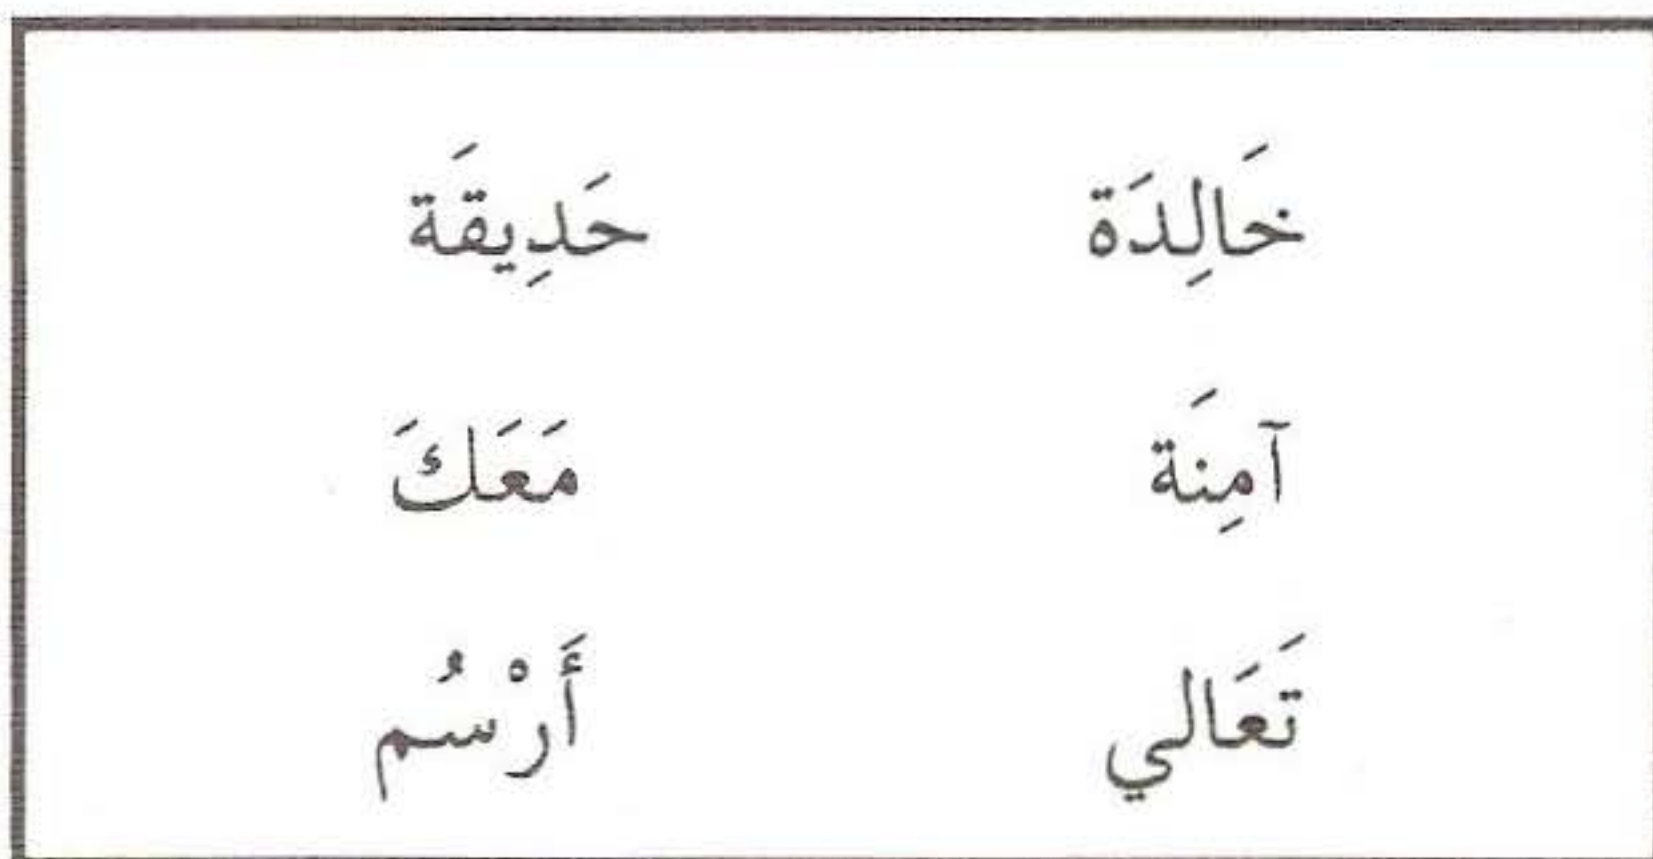 خَالِدَة حَدِيقَة
آمِنَة مَعَكَ
تَعَالي أَرْسُم